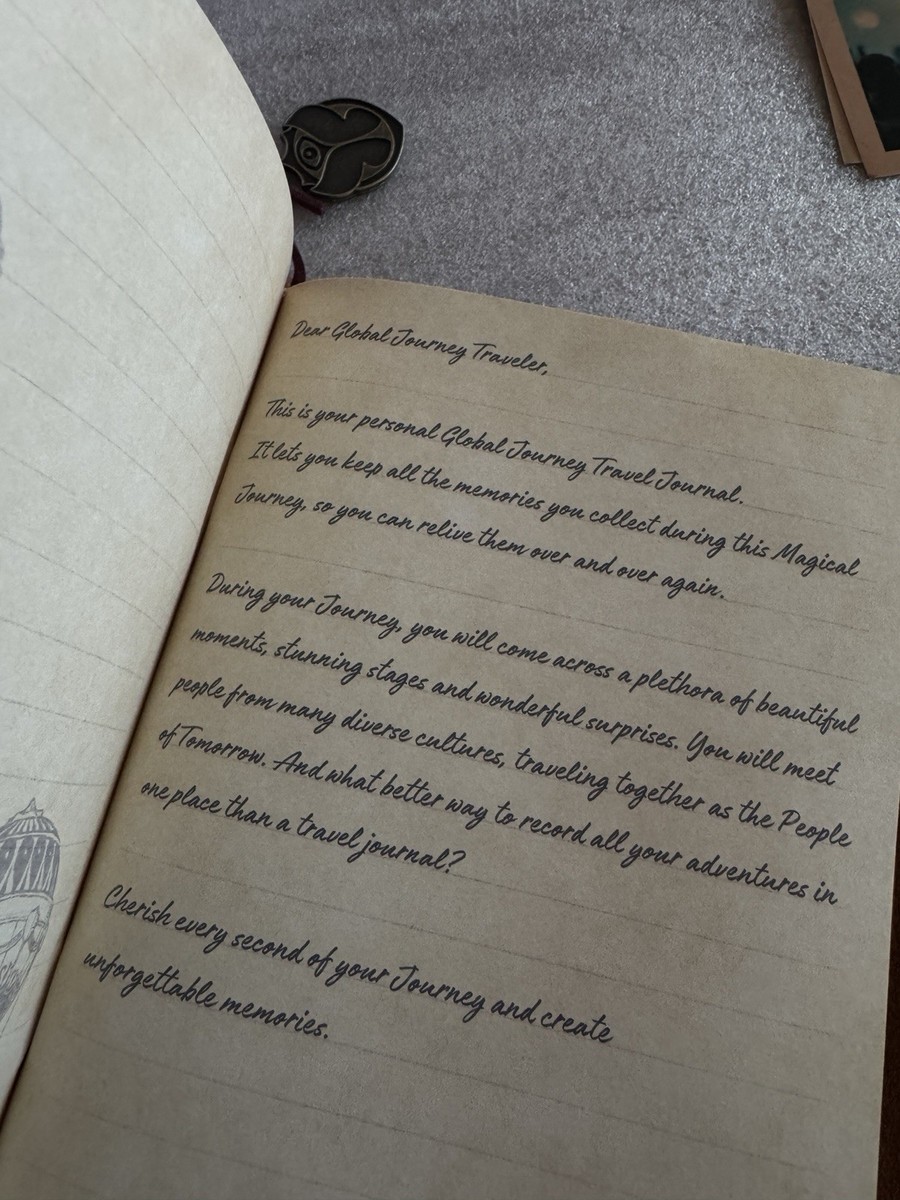 Dear Global Journey Traveler,
This is your personal Global Journey Travel Journal.
It lets you keep all the memories you collect during this Magical
Journey, so you can relive them over and over again.
During your Journey, you will come across a plethora of beautiful
moments, stunning stages and wonderful surprises. You will meet
people from many diverse cultures, traveling together as the People
of Tomorrow. And what better way to record all your adventures in
one place than a travel journal?
Cherish every second of your Journey and create
unforgettable memories.